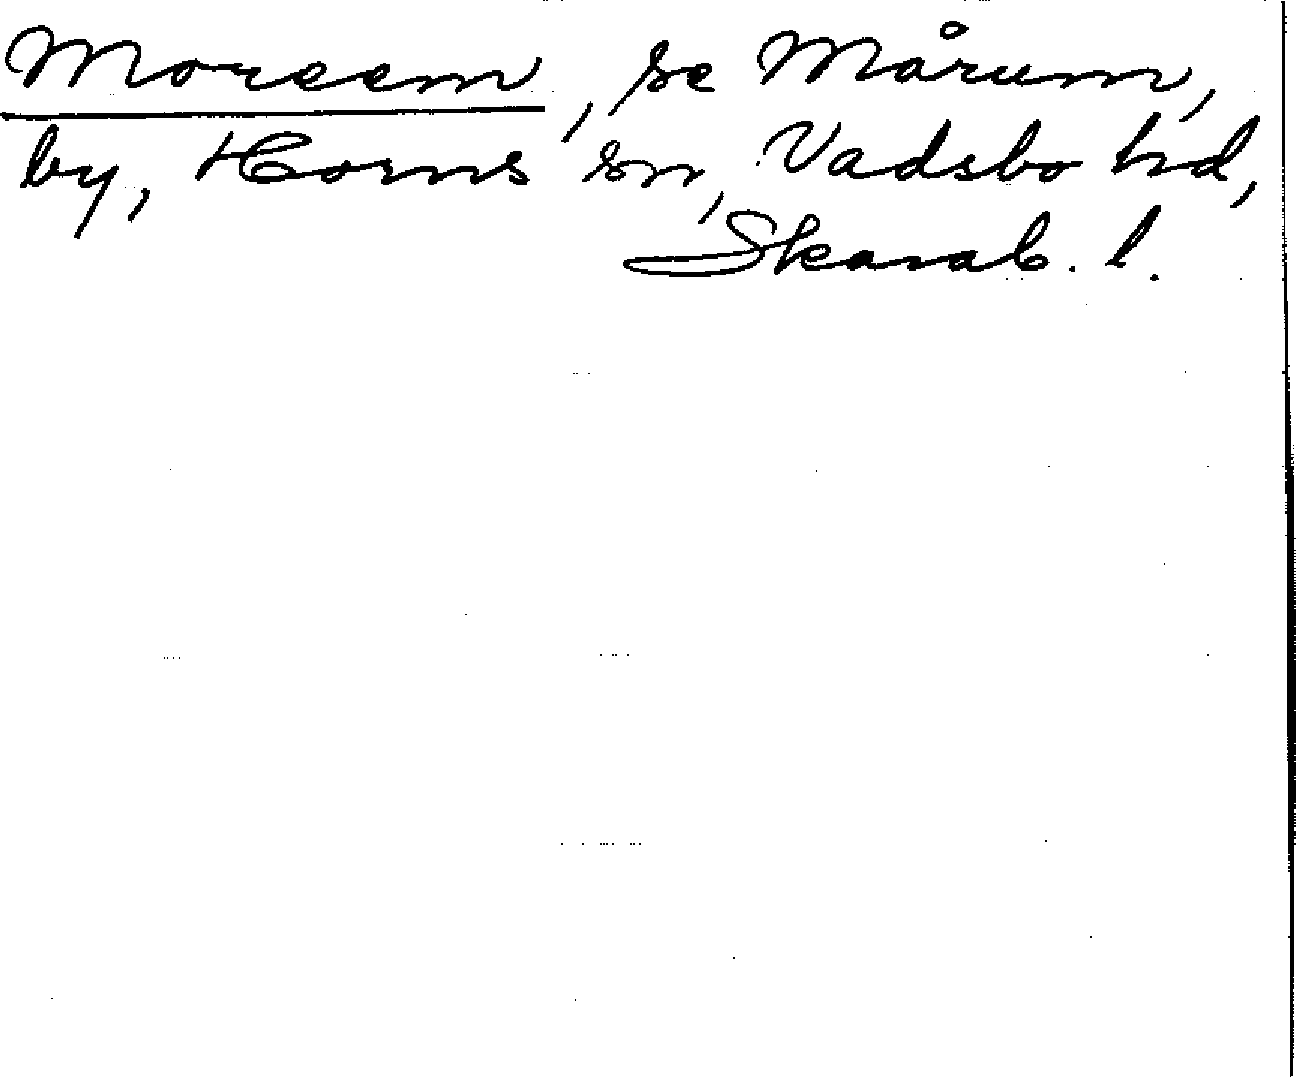 Moreem, se Mårum,
by, Horns sn, Vadsbo hd,
Skarab. l.